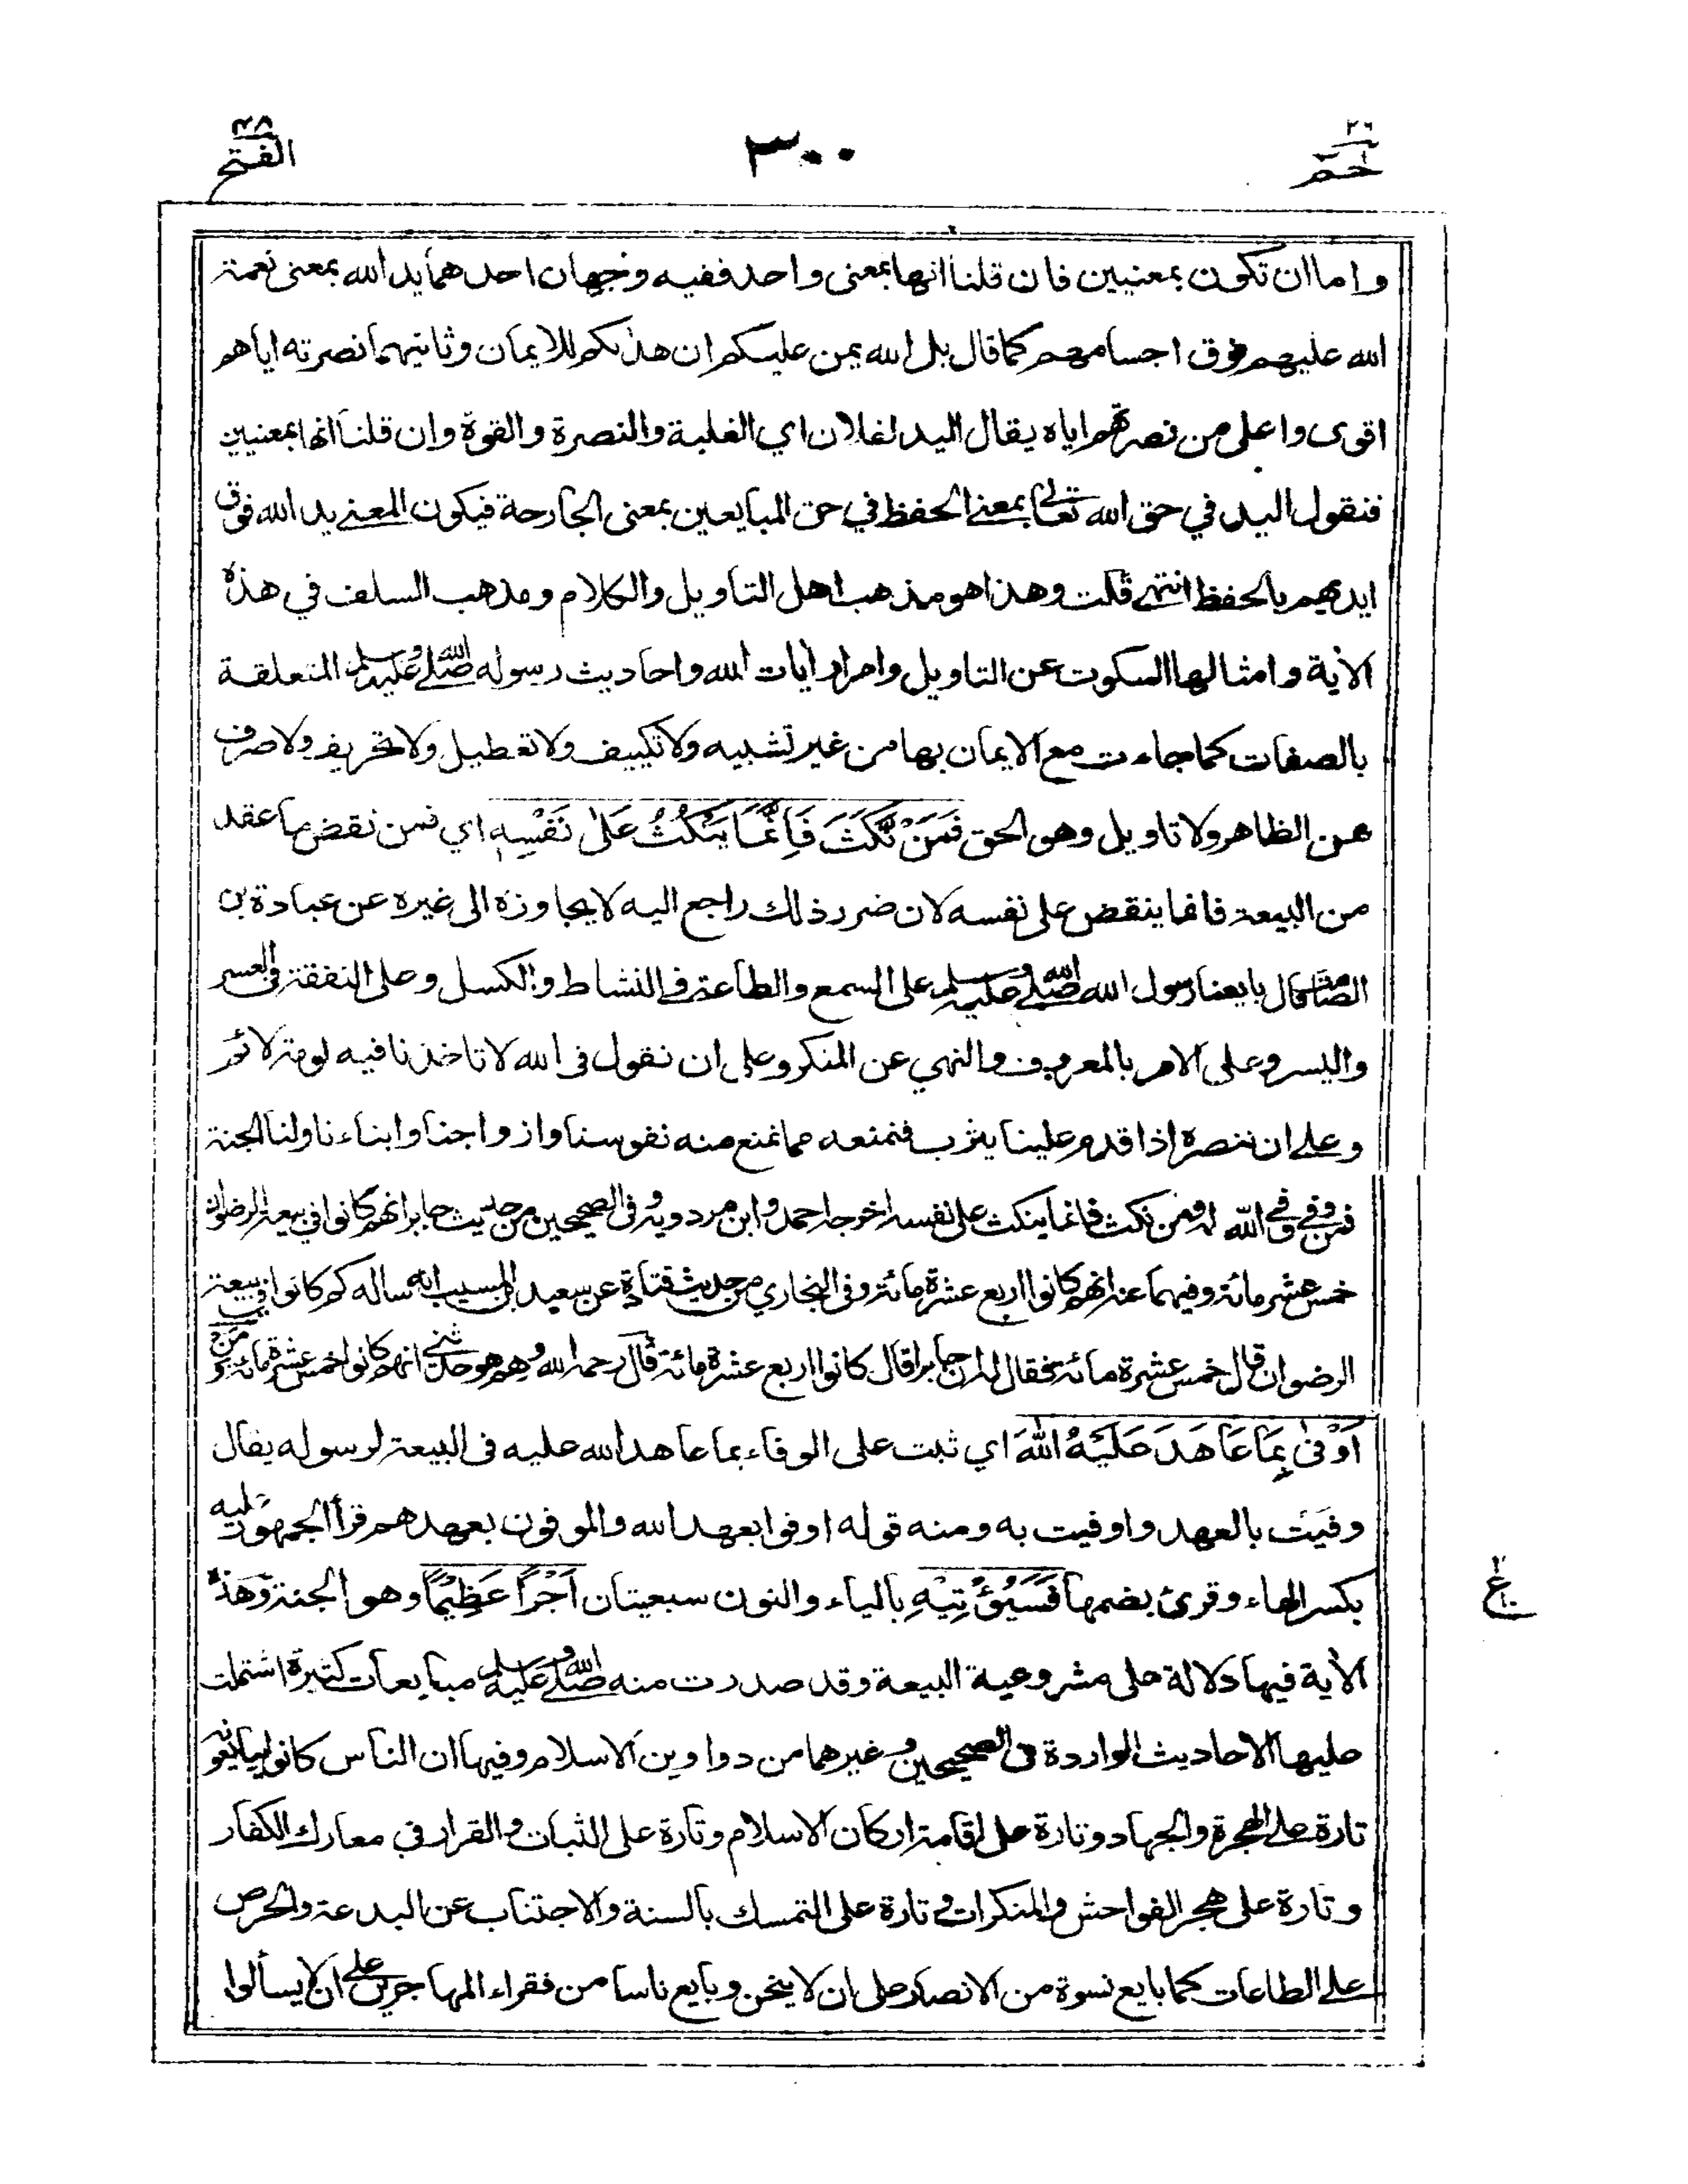 ٢٦
حم
٣٠٠
٤٨
الفتح
واما ان تكون بمعنيين فان قلنا انها بمعنى واحد ففيه وجهان احدهما يد الله بمعنى نعمة
الله عليهم فوق اجسامهم كما قال بل الله يمن عليكم ان هدٰىكم للايمان وثانيهما نصرته اياهم
اقوى واعلى من نصرتهم اياه يقال اليد لفلان اي الغلبة والنصرة والقوة وان قلنا انها بمعنيين
فنقول اليد في حق الله تعالى بمعنى الحفظ في حق المبايعين بمعنى الجارحة فيكون المعنى يد الله فوق
ايديهم بالحفظ انتهى قلت وهذا هو مذهب اهل التاويل والكلام ومذهب السلف في هذه
الآية وامثالها السكوت عن التاويل وامرار آيات الله واحاديث رسوله صلى الله عليه وسلم المتعلقة
بالصفات كما جاءت مع الايمان بها من غير تشبيه ولا تكييف ولا تعطيل ولا تحريف ولا صرف
عن الظاهر ولا تاويل وهو الحق فَمَنْ نَّكَثَ فَاِنَّمَا يَنْكُثُ عَلٰى نَفْسِهٖ اي فمن نقض ما عقد
من البيعة فانما ينقض على نفسه لان ضرر ذلك راجع اليه لا يجاوزه الى غيره عن عبادة بن
الصامت قال بايعنا رسول الله صلى الله عليه وسلم على السمع والطاعة في النشاط والكسل وعلى النفقة فى العسر
واليسر وعلى الامر بالمعروف والنهي عن المنكر وعلى ان نقول فى الله لا تاخذنا فيه لومة لائم
وعلى ان ننصره اذا قدم علينا يثرب فنمنعه مما نمنع منه نفوسنا وازواجنا وابناءنا ولنا الجنة
فمن وفى وفى الله له ومن نكث فانما ينكث على نفسه اخرجه احمد وابن مردويه وفى الصحيحين من حديث جابر انهم كانوا في بيعة الرضوان
خمس عشر مائة وفيهما عنه انهم كانوا اربع عشرة مائة وفى البخاري من حديث قتادة عن سعيد بن المسيب انه ساله كم كانوا في بيعة
الرضوان قال خمس عشرة مائة فقال له ان جابرا قال كانوا اربع عشرة مائة قال رحمه الله وهم هو حدثني انهم كانوا خمس عشرة مائة وَمَنْ
اَوْفٰى بِمَا عَاهَدَ عَلَيْهُ اللّٰهَ اي ثبت على الوفاء بما عاهد الله عليه فى البيعة لرسوله يقال
وفيت بالعهد واوفيت به ومنه قوله اوفوا بعهد الله والموفون بعهدهم قرأ الجمهور عليه
بكسر الهاء وقرئ بضمها فَسَيُؤْتِيْهِ بالياء والنون سبعيتان اَجْرًا عَظِيْمًا وهو الجنة وهذه
الآية فيها دلالة على مشروعية البيعة وقد صدرت منه صلى الله عليه وسلم مبايعات كثيرة اشتملت
عليها الاحاديث الواردة فى الصحيحين وغيرهما من دواوين الاسلام وفيها ان الناس كانوا يبايعونه
تارة على الهجرة والجهاد وتارة على اقامة اركان الاسلام وتارة على الثبات والقرار في معارك الكفار
وتارة على هجر الفواحش والمنكرات وتارة على التمسك بالسنة والاجتناب عن البدعة والحرص
على الطاعات كما بايع نسوة من الانصار على ان لا ينحن وبايع ناسا من فقراء المهاجرين على ان لا يسألوا